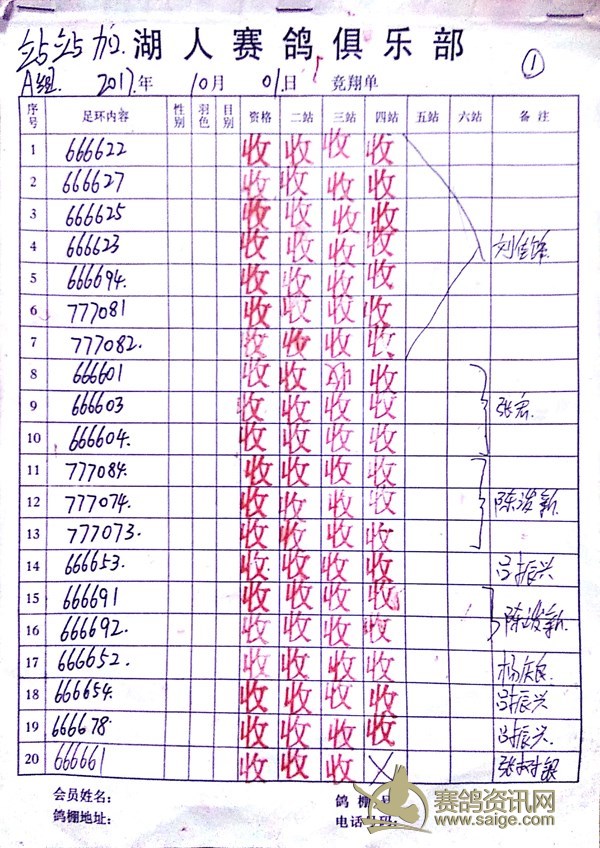 站站加. 湖人赛鸽俱乐部
A组. 2017年 10月 01日 竞翔单 ①
序号 足环内容 性别 羽色 目别 资格 二站 三站 四站 五站 六站 备注
1 666622 收 收 收 收
2 666627 收 收 收 收
3 666625 收 收 收 收
4 666623 收 收 收 收 刘佳
5 666694. 收 收 收 收
6 777081 收 收 收 收
7 777082. 收 收 收 收
8 666601 收 收 收
9 666603 收 收 收 收 张宏.
10 666604. 收 收 收 收
11 777084. 收 收 收 收
12 777074. 收 收 收 收 陈浚新.
13 777073. 收 收 收 收
14 666653. 收 收 收 收 吕振兴
15 666691 收 收 收 收 陈浚新.
16 666692. 收 收 收 收
17 666652. 收 收 收 收 杨庆良.
18 666654. 收 收 收 收 吕振兴
19 666678 收 收 收 收 吕振兴.
20 666661 收 收 收 X 张树银
会员姓名: 鸽棚 号
鸽棚地址: 电话号码:
赛鸽资讯网
www.saige.com